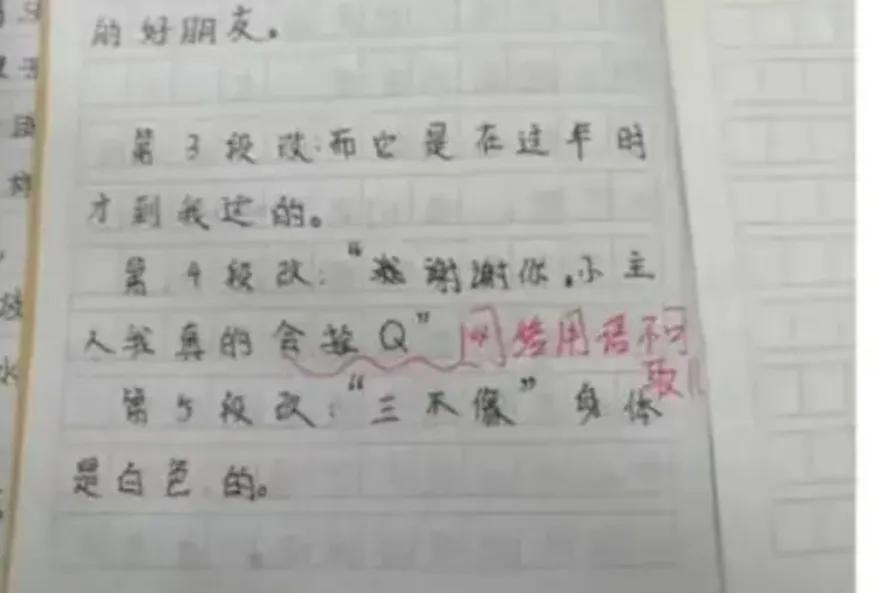 的好朋友。
第3段改:而它是在过年时
才到我这的。
第4段改:“谢谢你,小主
人我真的会 Q”
网络用语不可
取!!
第5段改:“三不像”身体
是白色的。